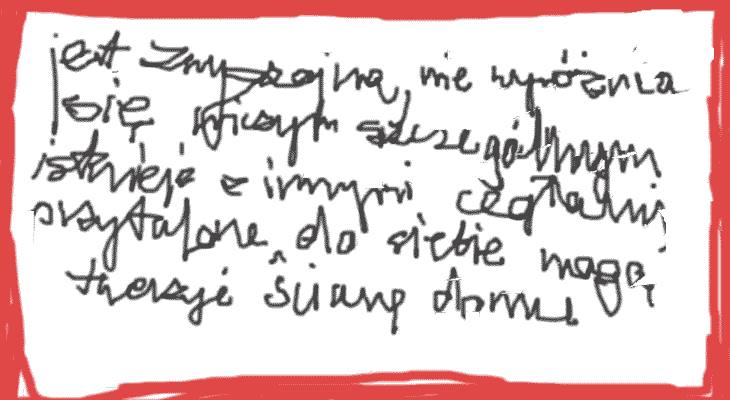 jest zwyczajną, nie wyróżnia
się niczym szczególnym
istnieje z innymi cegłami
przytulone do siebie mogą
tworzyć ścianę domu